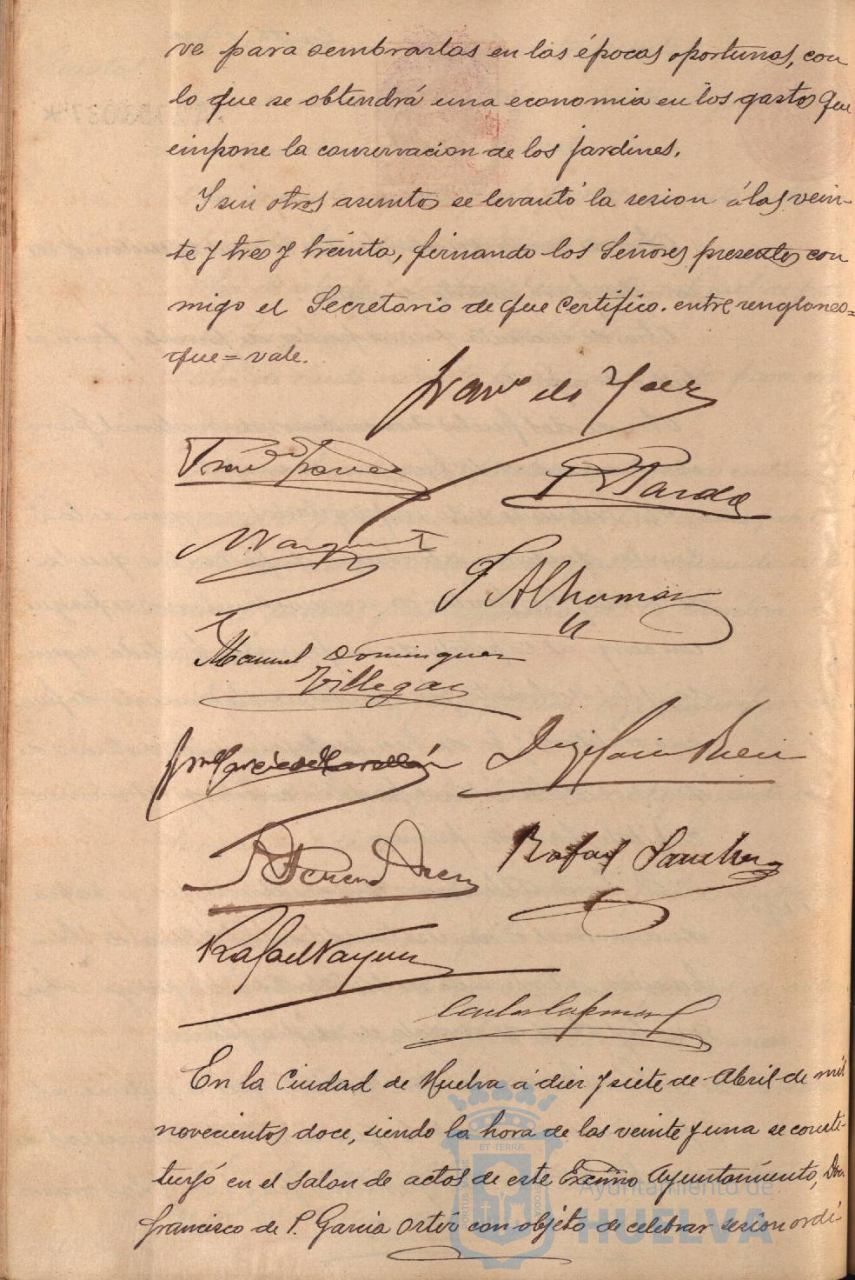 ve para sembrarlas en las épocas oportunas, con
lo que se obtendrá una economia en los gastos que
impone la conservacion de los jardines.
Y sin otros asuntos se levantó la sesion á las vein-
te y tres y treinta, firmando los Señores presentes con
migo el Secretario de que certifico. entre renglones=
que=vale.
P. Pardo
F Alhama
Manuel Dominguez
Villegas
Rafael Sanchez
Rafael Vazquez
En la Ciudad de Huelva á diez y siete de Abril de mil
novecientos doce, siendo la hora de las veinte y una se consti-
tuyó en el salon de actos de este Excmo Ayuntamiento, Don
Francisco de P. Garcia Ortiz con objeto de celebrar sesion ordi
Ayuntamiento de
HUELVA